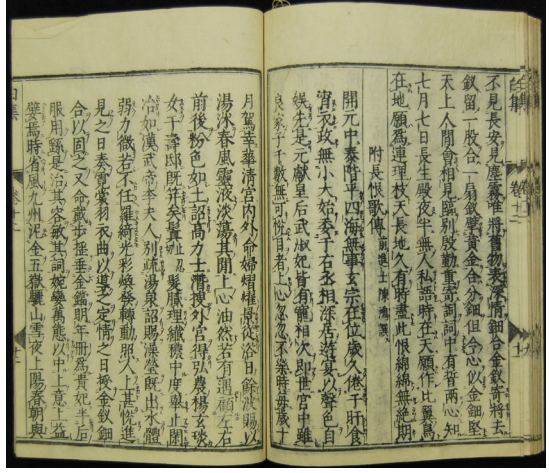 白集 卷十二
不見長安見塵霧唯將舊物表深情鈿合金釵寄將去
釵留一股合一扇釵擘黄金合分鈿但令心似金鈿堅
天上人間會相見臨別殷勤重寄詞詞中有誓兩心知
七月七日長生殿夜半無人私語時在天願作比翼鳥
在地願爲連理枝天長地久有時盡此恨綿綿無絶期
附長恨歌傳
前進士陳鴻撰
開元中泰階平四海無事玄宗在位歲久倦于旰食
宵衣政無小大始委于右丞相深居游宴以聲色自
娯先是元獻皇后武淑妃皆有寵相次即世宮中雖
良家子千數無可悅目者上心忽忽不樂時毎歲十
月駕幸華清宮内外命婦熠燿景從浴日餘波賜以
湯沐春風靈液淡蕩其間上心油然若有遇顧左右
前後粉色如土詔高力士潛搜外宮得弘農楊玄琰
女于壽邸既笄矣鬢髮膩理纖穠中度擧止閑
冶如漢武帝李夫人別疏湯泉詔賜澡瑩既出水體
弱力微若不任羅綺光彩煥發轉動照人上甚悅進
見之日奏霓裳羽衣曲以導之定情之夕授金釵鈿
合以固之又命戴步搖垂金鐺明年冊爲貴妃半后
服用繇是冶其容敏其詞婉孌萬態以中上意上益
嬖焉時省風九州泥金五嶽驪山雪夜上陽春朝與
白集 卷十二